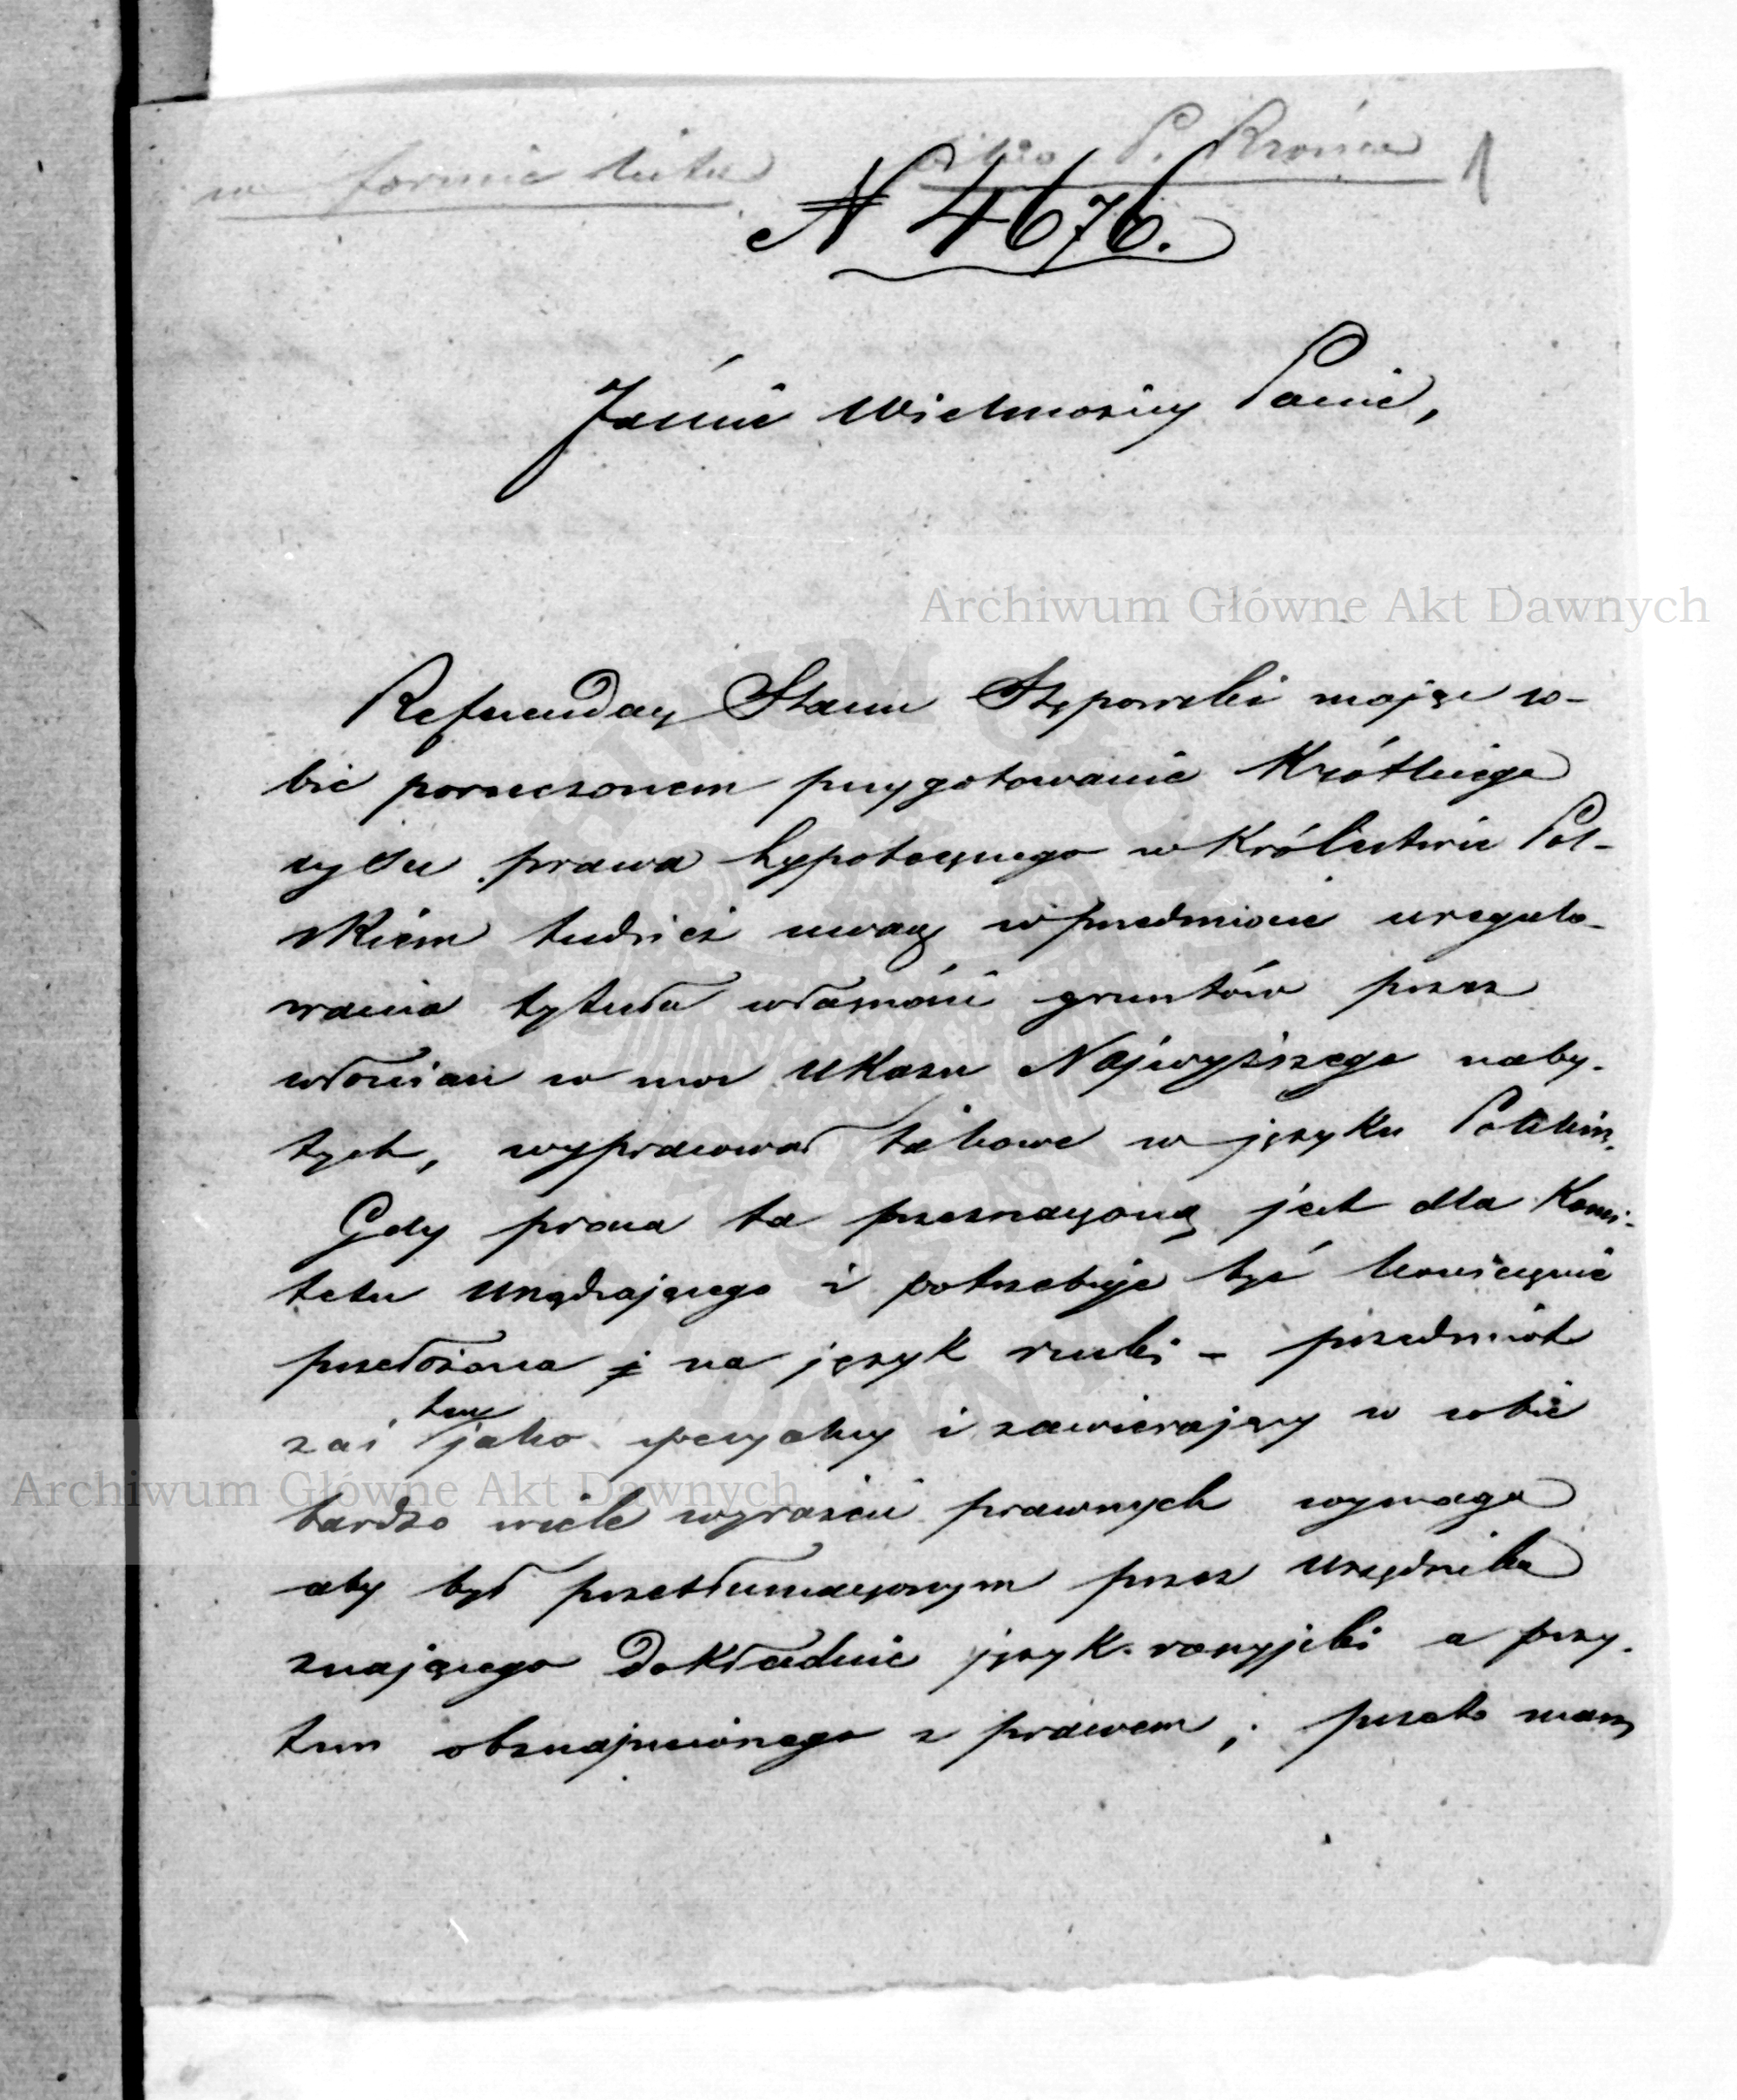 w formie listu P. Kronice 1
N 4676.
Jaśnie Wielmożny Panie,
Archiwum Główne Akt Dawnych
Referendarz Stanu Stępowski mając so-
bie poruczonem przygotowanie Krótkiego
rysu prawa hypotecznego w Królestwie Pol-
skiem tudzież uwag w przedmiocie uregulo-
wania tytułu własności gruntów przez
włościan w moc Ukazu Najwyższego naby-
tych, wypracował takowe w języku Polskim.
Gdy praca ta przeznaczoną jest dla Komi-
tetu Urządzającego i potrzebuje być koniecznie
przełożona i na język ruski – przedmiot
zaś ten jako specyalny i zawierający w sobie
Archiwum Główne Akt Dawnych
bardzo wiele wyrażeń prawnych wymaga
aby był przetłumaczonym przez Urzędnika
znającego Dokładnie język rossyjski a przy-
tem obznajmionego z prawem, przeto mam